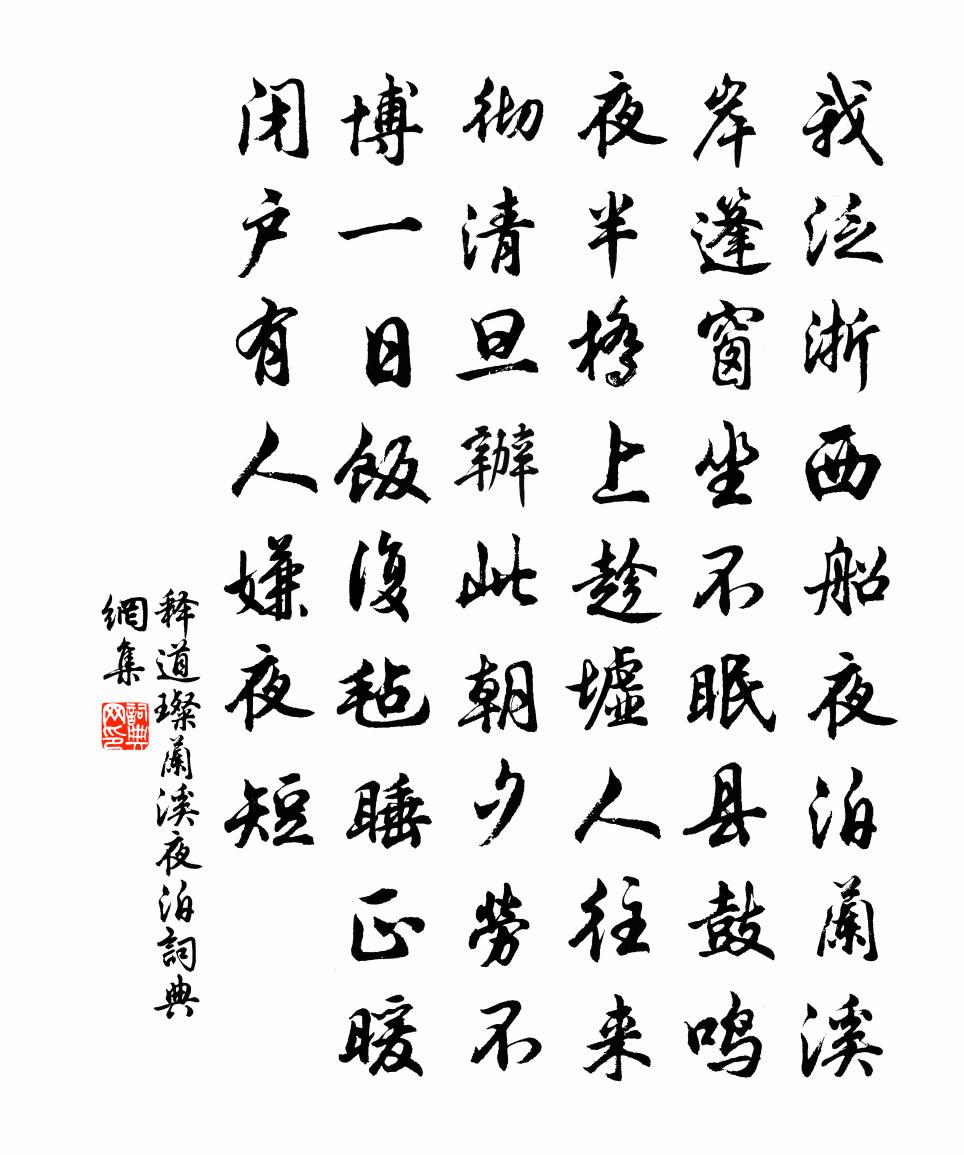 我泛浙西船夜泊蘭溪
岸蓬窗坐不眠县鼓鸣
夜半橋上趁墟人往来
彻清旦辦此朝夕勞不
博一日飯復毡睡正暖
闭户有人嫌夜短
释道璨蘭溪夜泊詞典
網集
詞典网印